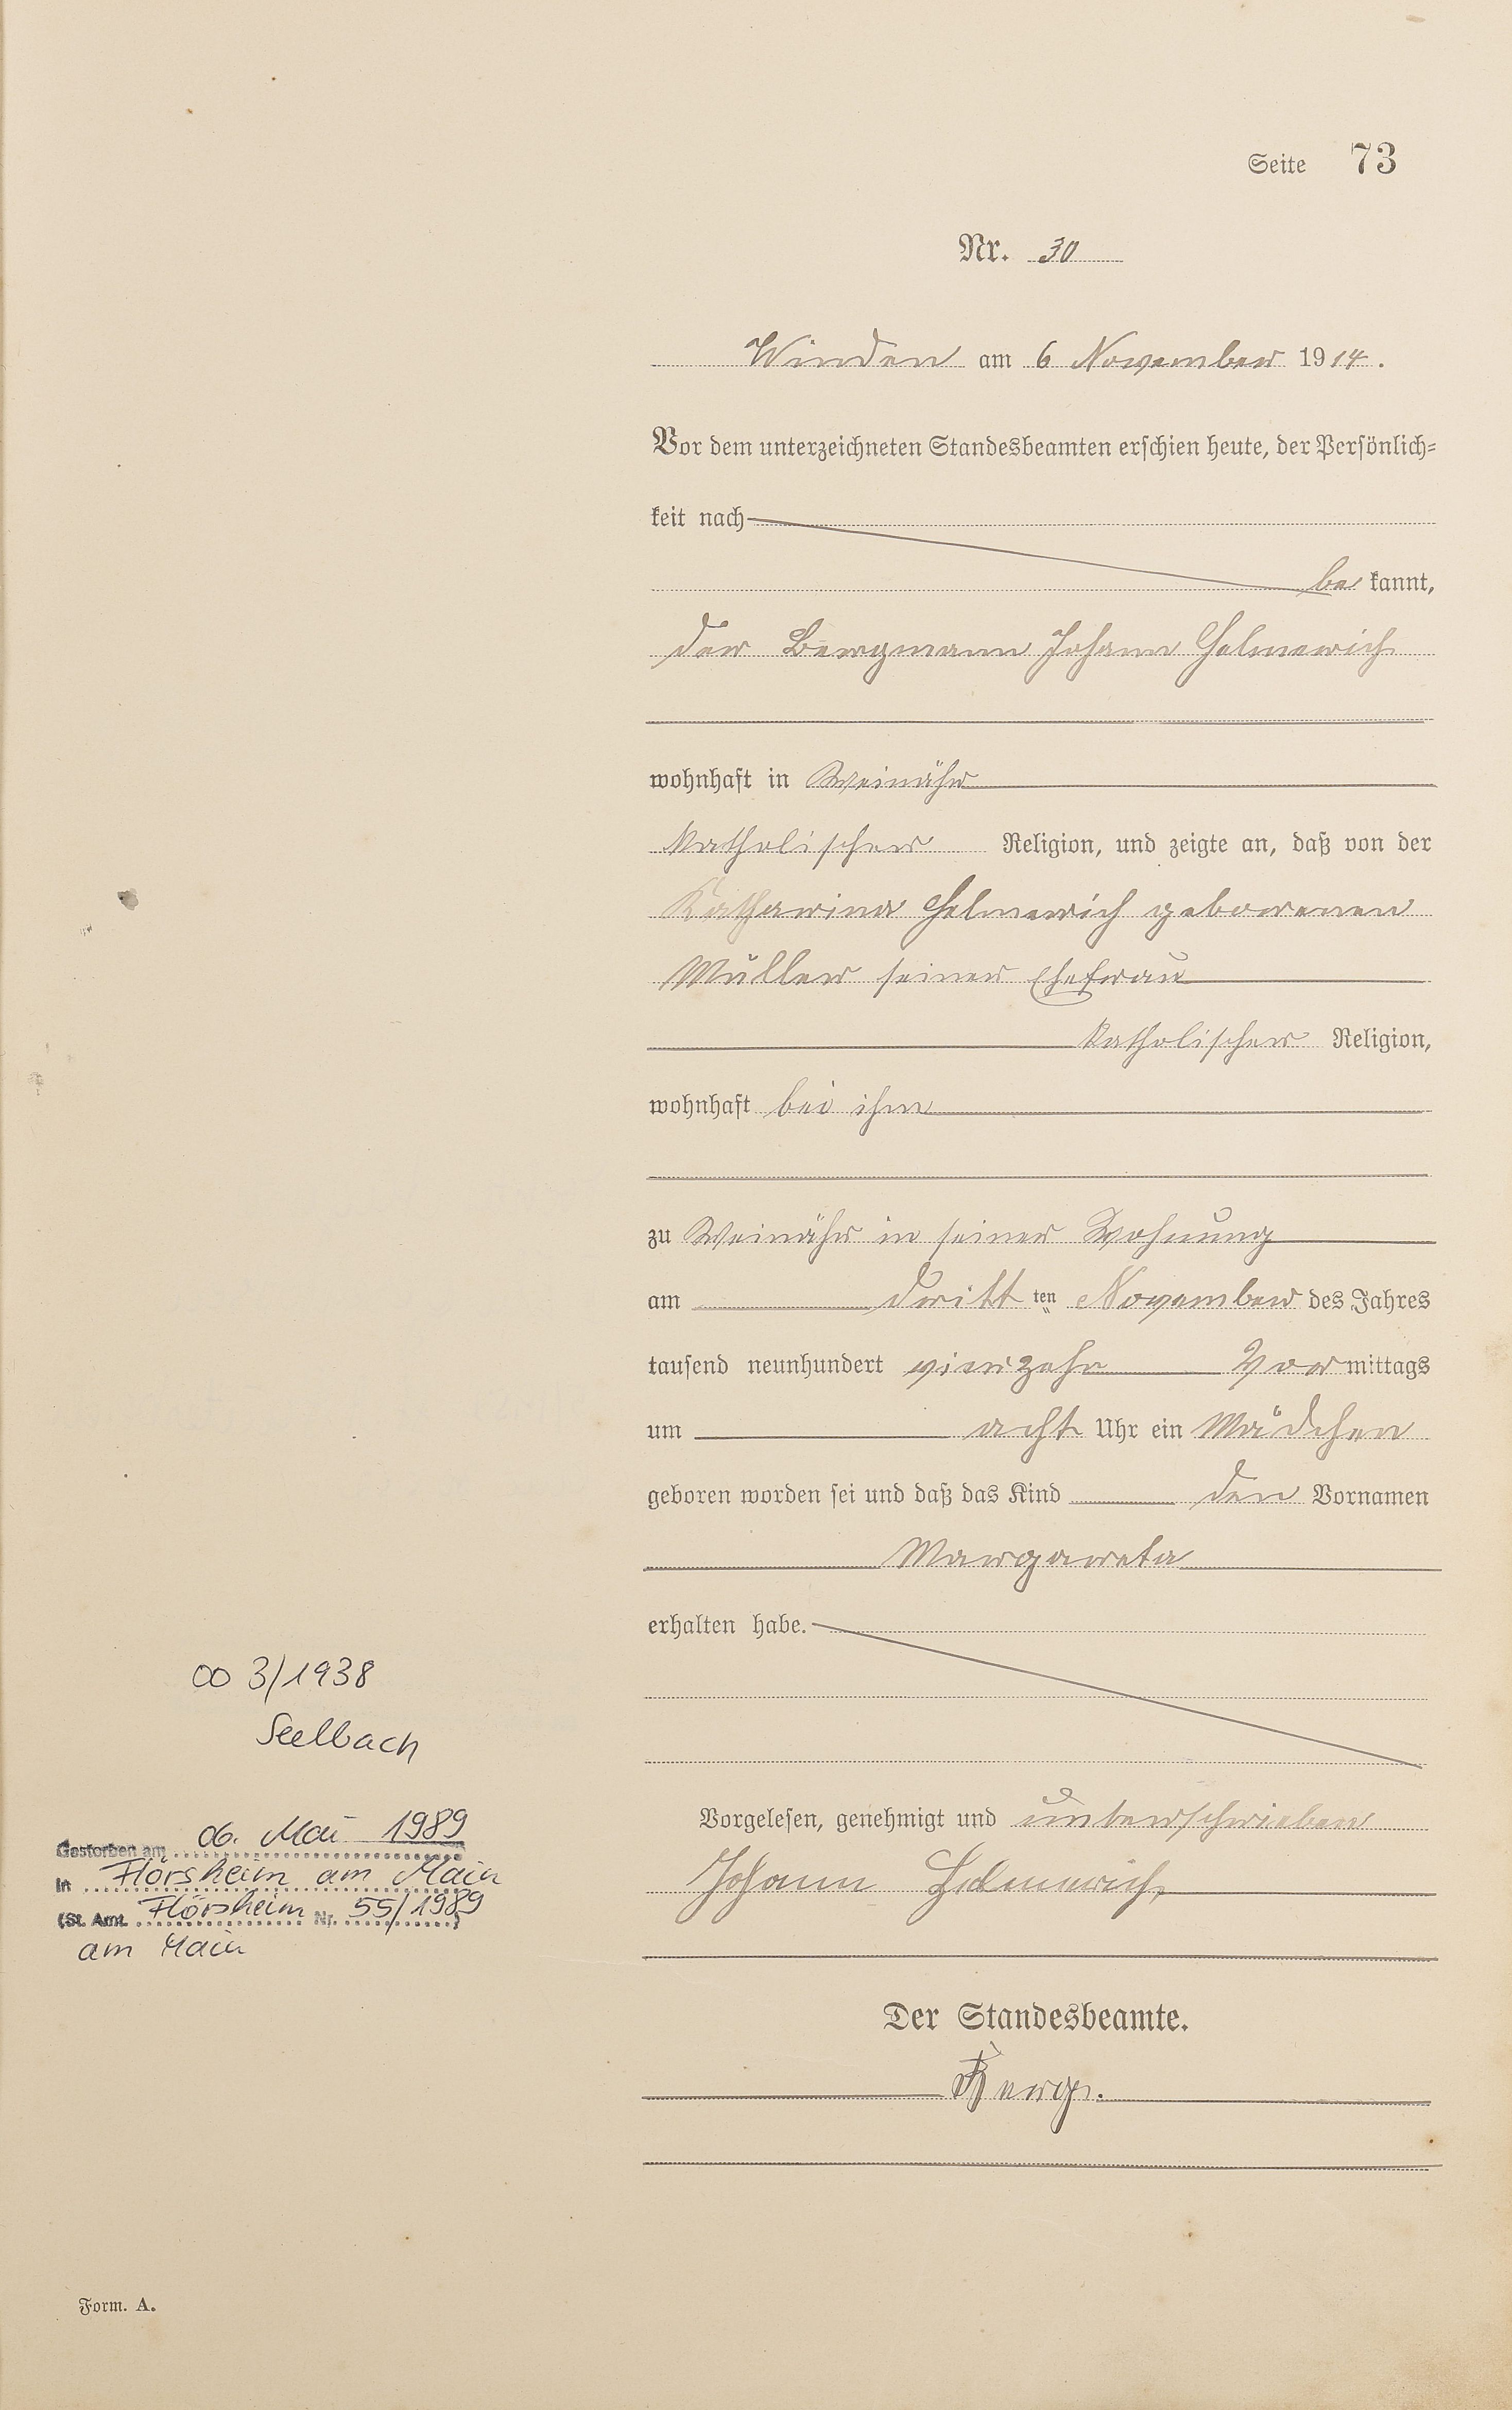 Seite 73
Nr. 30
Winden am 6 November 1914.
Vor dem unterzeichneten Standesbeamten erschien heute, der Persönlich=
keit nach
be kannt,
der Bergmann Johann Helmerich
wohnhaft in Weinähr
katholischer Religion, und zeigte an, daß von der
Katharina Helmerich geborenen
Müller seiner Ehefrau
katholischer Religion,
wohnhaft bei ihm
zu Weinähr in seiner Wohnung
am dritt ten November des Jahres
tausend neunhundert vierzehn Vor mittags
um acht Uhr ein Mädchen
geboren worden sei und daß das Kind den Vornamen
Margareta
erhalten habe.
Vorgelesen, genehmigt und unterschrieben
Johann Helmerich
Der Standesbeamte.
∞ 3/1938
Seelbach
Gestorben am 06. Mai 1989
in Flörsheim am Main
(St. Amt. Flörsheim Nr. 55/1989)
am Main
Form. A.